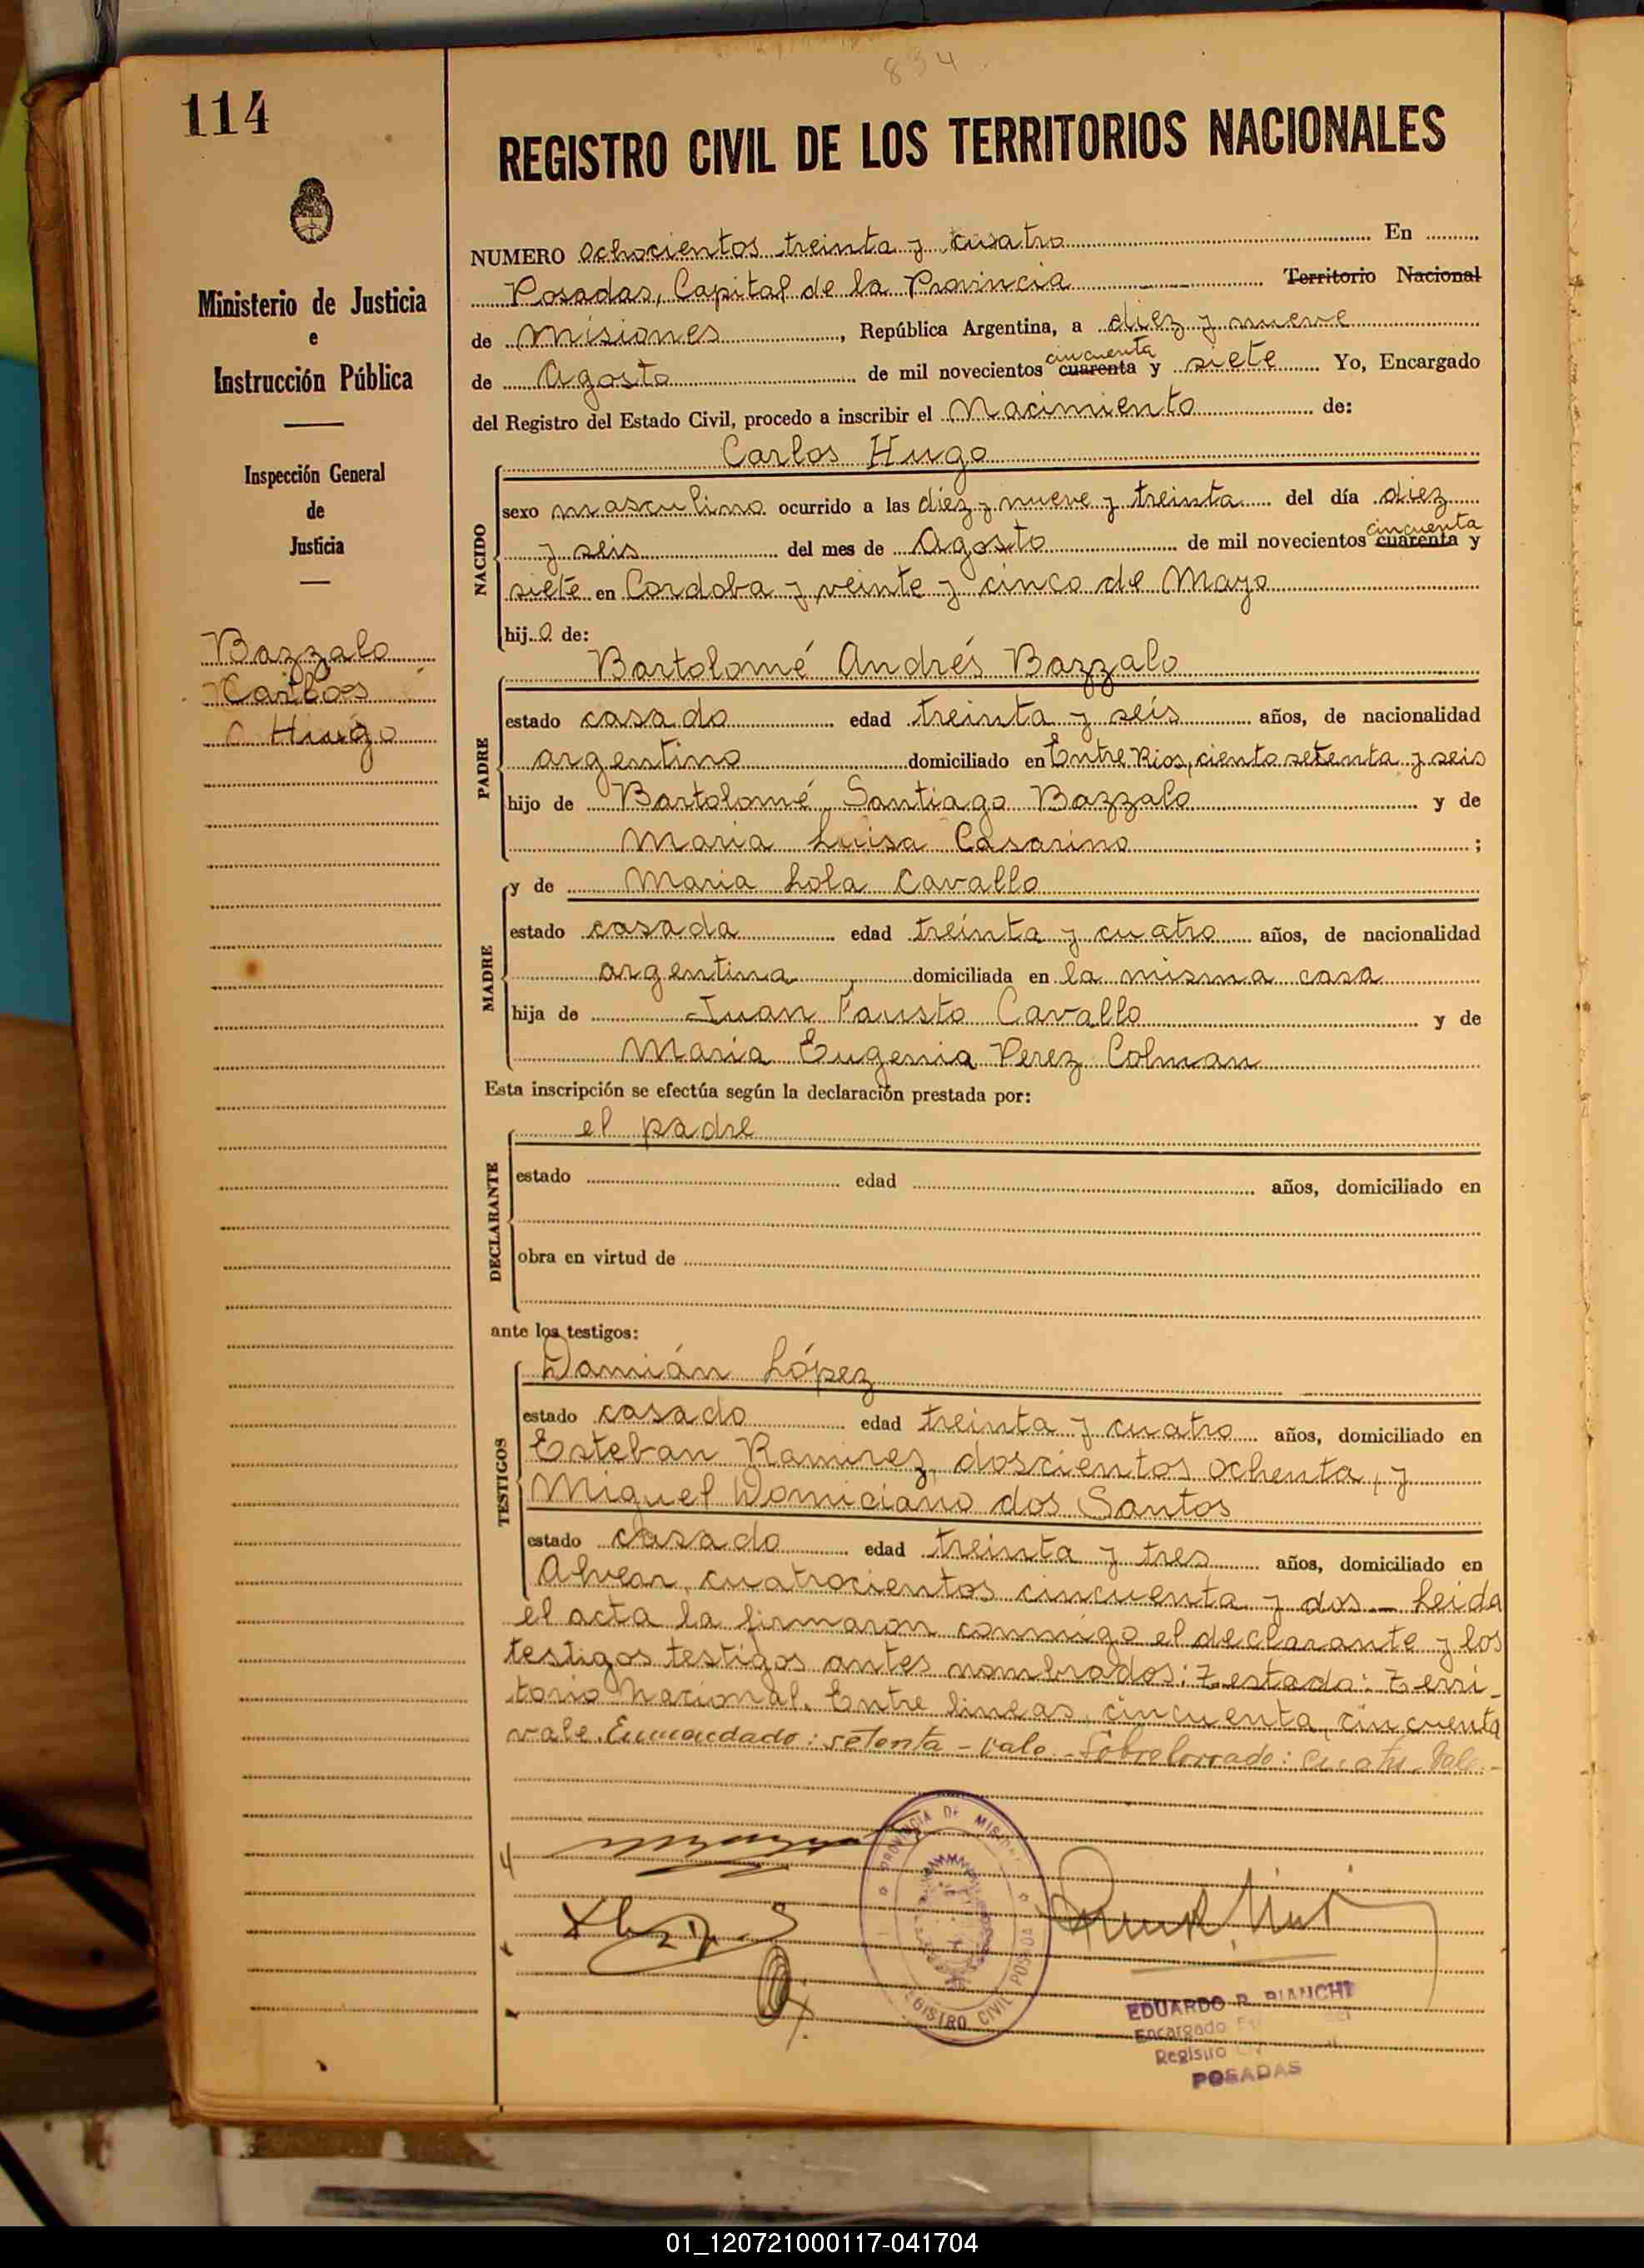 834
114
REGISTRO CIVIL DE LOS TERRITORIOS NACIONALES
Ministerio de Justicia
e
Instrucción Pública
Inspección General
de
Justicia
Bazzalo
Carlos
Hugo
NUMERO ochocientos treinta y cuatro En
Posadas, Capital de la Provincia Territorio Nacional
de Misiones, República Argentina, a diez y nueve
de Agosto de mil novecientos cuarenta cincuenta y siete Yo, Encargado
del Registro del Estado Civil, procedo a inscribir el Nacimiento de:
NACIDO
Carlos Hugo
sexo masculino ocurrido a las diez y nueve y treinta del día diez
y seis del mes de Agosto de mil novecientos cuarenta cincuenta y
siete en Cordoba y veinte y cinco de Mayo
hijo de:
PADRE
Bartolomé Andrés Bazzalo
estado casado edad treinta y seis años, de nacionalidad
argentino domiciliado en Entre Rios, ciento setenta y seis
hijo de Bartolomé Santiago Bazzalo y de
Maria Luisa Casarino ;
MADRE
y de Maria Lola Cavallo
estado casada edad treinta y cuatro años, de nacionalidad
argentina domiciliada en la misma casa
hija de Juan Fausto Cavallo y de
Maria Eugenia Perez Colman
Esta inscripción se efectúa según la declaración prestada por:
DECLARANTE
el padre
estado edad años, domiciliado en
obra en virtud de
ante los testigos:
TESTIGOS
Damián López
estado casado edad treinta y cuatro años, domiciliado en
Esteban Ramirez, doscientos ochenta, y
Miguel Domiciano dos Santos
estado casado edad treinta y tres años, domiciliado en
Alvear, cuatrocientos cincuenta y dos — Leida
el acta la firmaron conmigo el declarante y los
testigos testigos antes nombrados: Testado: Terri-
torio Nacional. Entre lineas, cincuenta, cincuenta
vale. Enmendado: setenta - vale - Sobreborrado: cuatro Vale.-
PROVINCIA DE MISIONES
REGISTRO CIVIL POSADAS
EDUARDO R. BIANCHI
Encargado
Registro
POSADAS
01_120721000117-041704